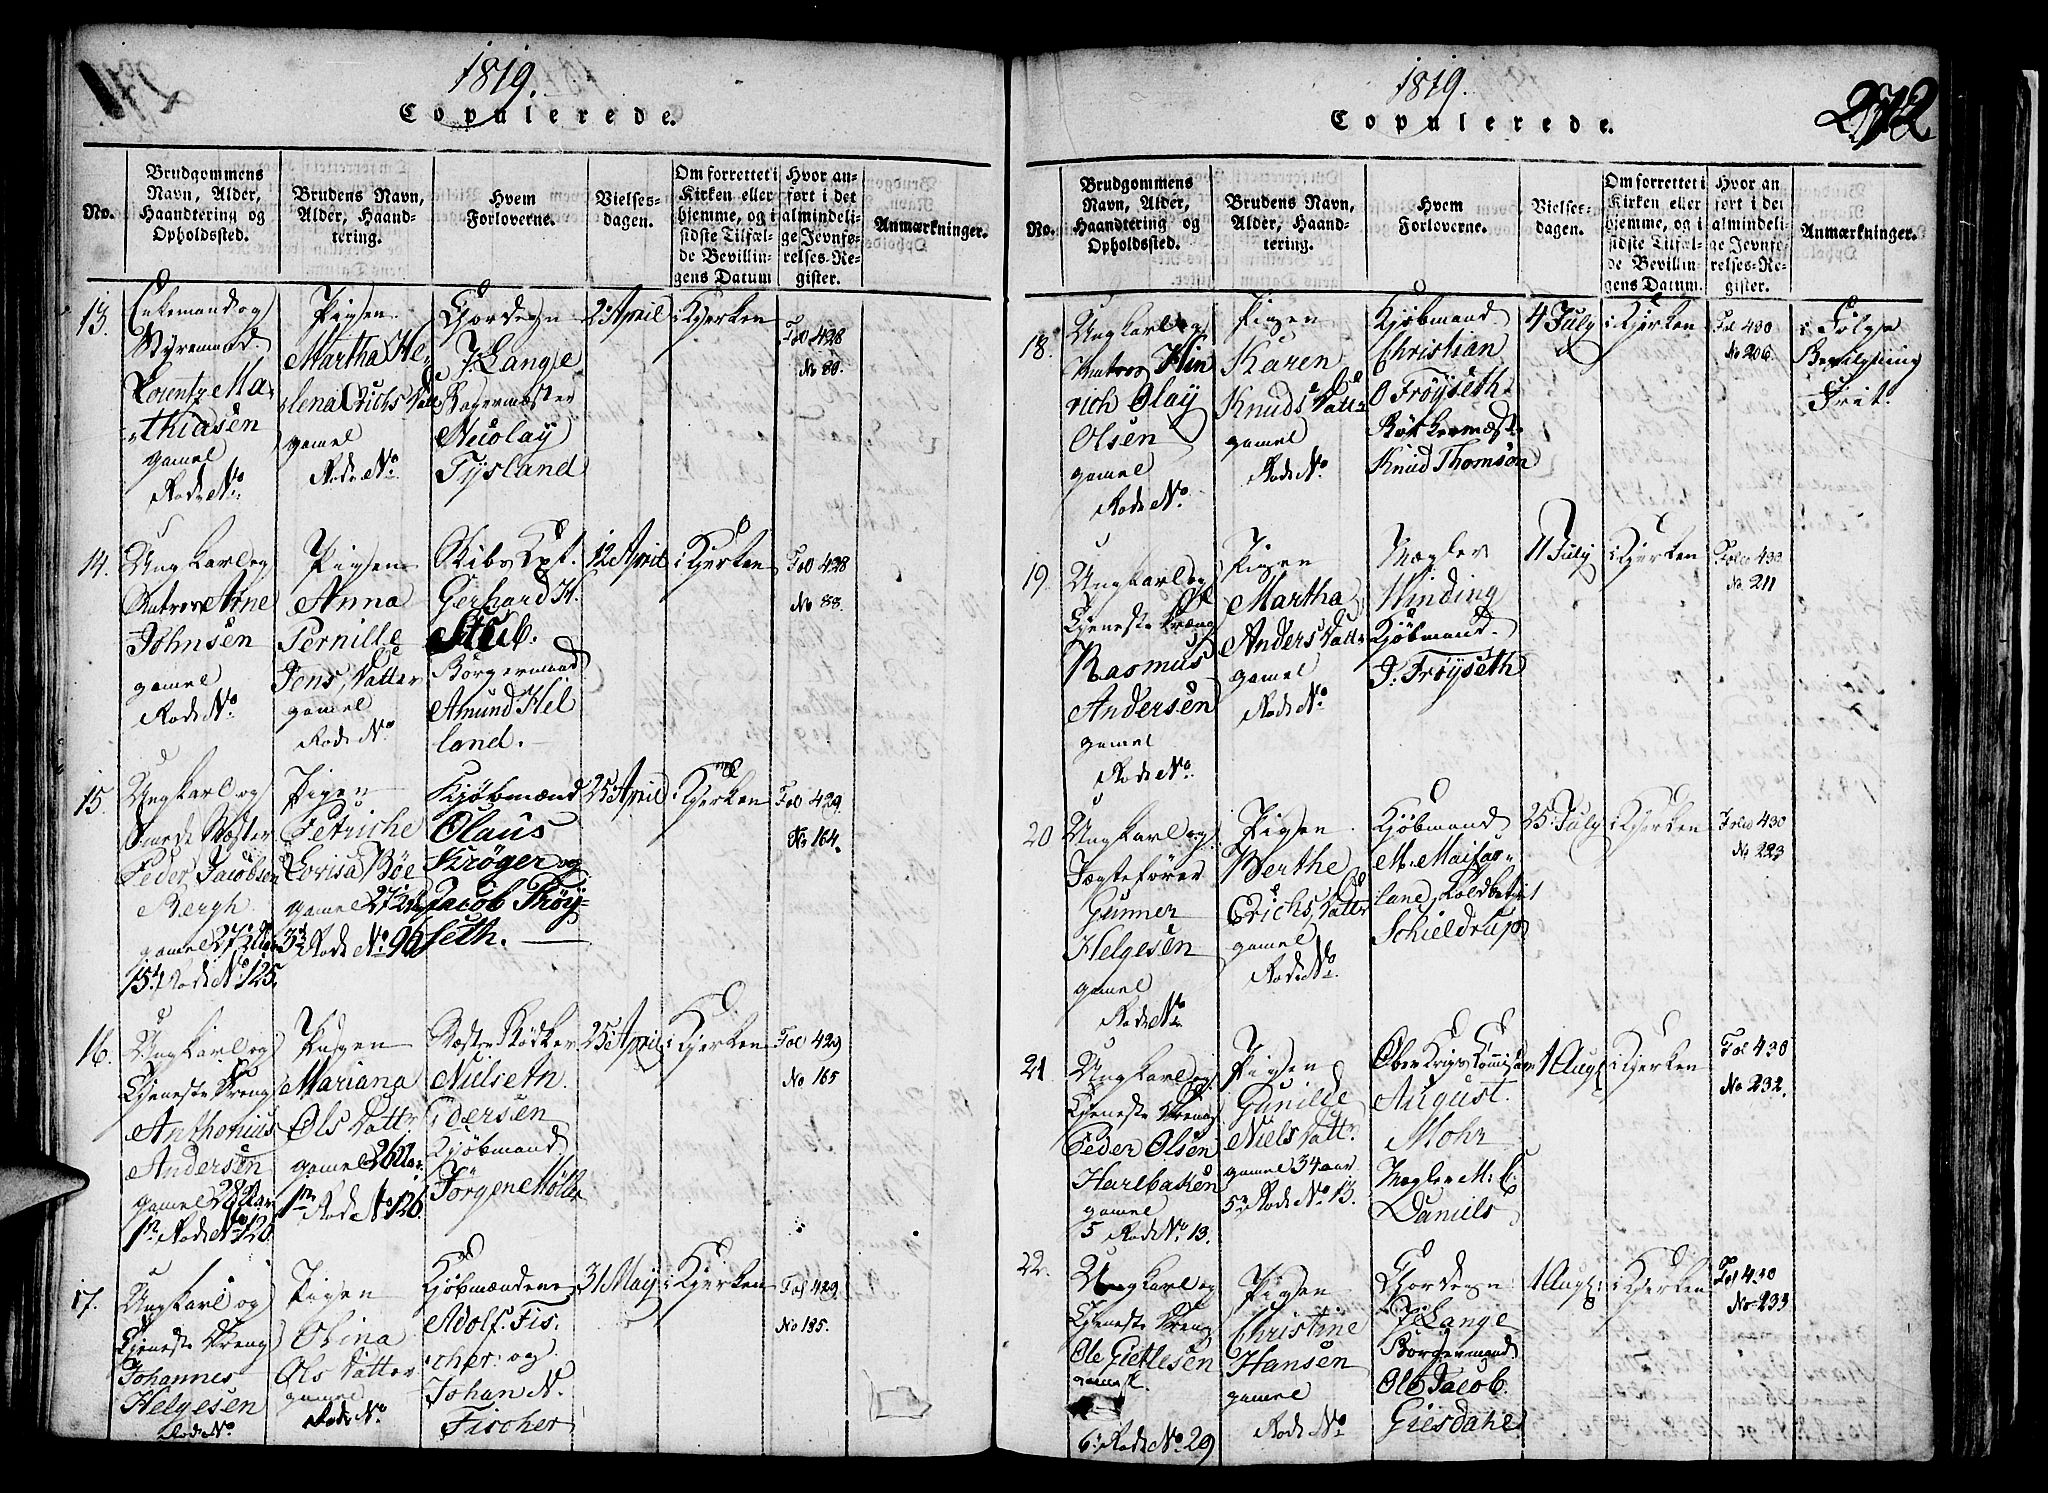 1819.
Copulerede.
No.
Brudgommens Navn, Alder, Haandtering og Opholdssted.
Brudens Navn, Alder, Haandtering.
Hvem Forloverne.
Vielsesdagen.
Om forrettet i Kirken eller hjemme, og i sidste Tilfælde Bevillingens Datum
Hvor anført i det almindelige Jevnførelses-Register.
Anmærkninger.
13.
Enkemand og
Styrmand
Lorentze Ma-
thiasen
gamel
Rode No.
Pigen
Martha He-
lena Erichs Datter
gamel
Rode No.
Gjordegn
J. Lange
Bagermester
Nicolay
Tysland
2 April
i Kjerken
Fol 428
No 80.
14.
Ungkarl og
Matros Arne
Johnsen
gamel
Rode No.
Pigen
Anna
Pernille
Jens Datter
gamel
Rode No
Skibs Cpt.
Gerhard H.
Stub.
Borgermand
Amund Hel
land.
12 April
i Kjerken
Fol 428
No 88.
15
Ungkarl og
Smede Mester
Peder Jacobsen
Bergh
gamel 27 Aar
15 Rode No 125.
Pigen
Petriche
Lovisa Bøe
gamel 27 Aar
3 Rode No 90
Kjøbmænd
Olaus
Krøger og
Jacob Frøy-
seth.
25 April
i Kjerken
Fol 429.
No 164.
16.
Ungkarl og
Tjeneste Dreng
Anthonius
Andersen
gamel 28 Aar
1 Rode No 120
Pigen
Mariana
Ols Datter
gamel 26 Aar
1 Rode No 126.
Mester Bødker
Niels An
dersen
Kjøbmand
Jørgen Møller
25 April
i Kjerken
Fol 429
No 165
17.
Ungkarl og
Tjeneste Dreng
Johannes
Helgesen
Rode No
Pigen
Olina
Ols Datter
gamel
Rode No
Kjøbmændene
Adolf. Fis-
cher: og
Johan N.
Fischer
31 May
i Kjerken
Fol 429.
No 185.
1819.
Copulerede.
272
No.
Brudgommens Navn, Alder, Haandtering og Opholdssted.
Brudens Navn, Alder, Haandtering.
Hvem Forloverne.
Vielsesdagen.
Om forrettet i Kirken eller hjemme, og i sidste Tilfælde Bevillingens Datum.
Hvor anført i det almindelige Jevnførelses-Register.
Anmærkninger.
18.
Ungkarl og
Matros Hin
rich Olay
Olsen
gamel
Rode No.
Pigen
Karen
Knuds Datter
gamel
Rode No.
Kjøbmand
Christian
O Frøyseth
Bødkermester
Knud Thomson
4 July
i Kjerken
Fol 430
No 206.
i Følge
Bevilgning
Frit.
19.
Ungkarl og
Tjeneste Dreng
Rasmus
Andersen
gamel
Rode No.
Pigen
Martha
Anders Datter
gamel
Rode No.
Mægler
Winding
Kjøbmand
J. Frøyseth
11 July
i Kjerken
Folio 430
No. 211
20
Ungkarl og
Jægtefører
Gunner
Helgesen
gamel
Rode No.
Pigen
Berthe
Erichs Datter
gamel
Rode No.
Kjøbmand
M. Maifar-
land, Koldbetient
Schieldrup
25 July
i Kjerken
Folio 430
No 223
21
Ungkarl og
Tjeneste Dreng
Peder Olsen
Harlbaken
gamel
5 Rode No. 13.
Pigen
Gunilde
Niels Datter
gamel 34 aar
5 Rode No 13.
Ober Krigs Commissair
August.
Mohr
Mægler M. C.
Daniels
1 Aug
i Kjerken
Fol 430
No 232.
22.
Ungkarl og
Tjeneste Dreng
Ole Gietlesen
gamel
6 Rode No 29
Pigen
Christine
Hansen
gamel
Rode No.
Gjordegn
J. Lange
Borgermand
Ole Jacob
Giesdahl
1 Aug
i Kjerken
Fol 430
No 233